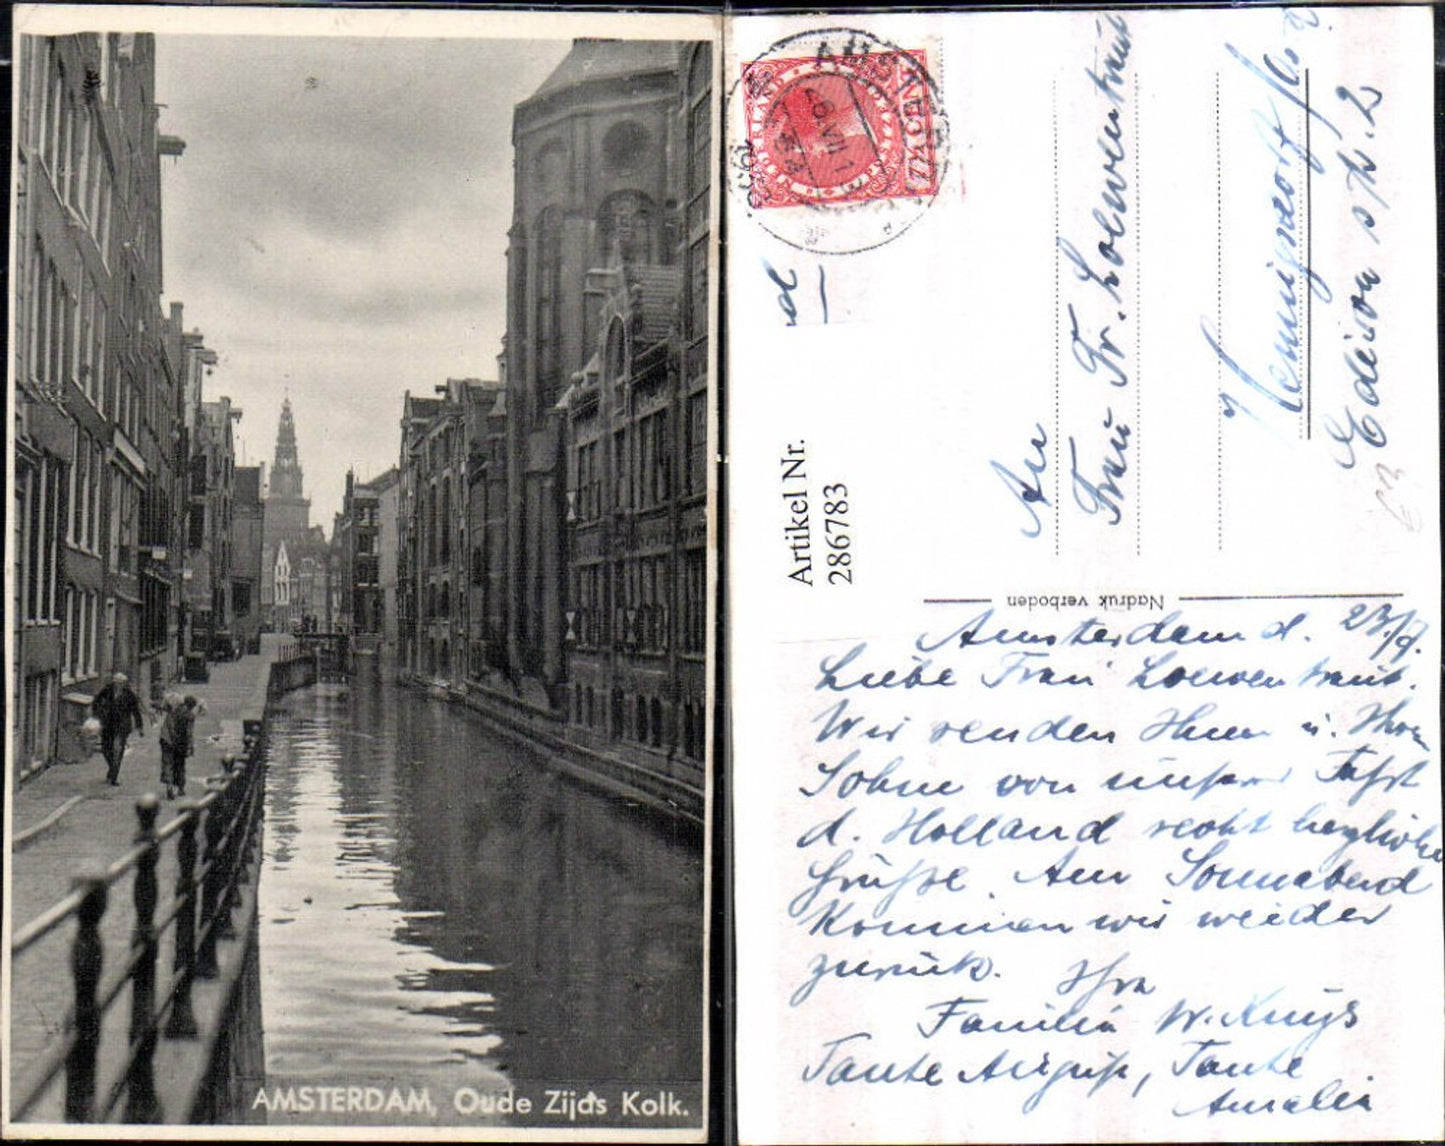 AMSTERDAM, Oude Zijds Kolk.
AMSTERDAM
NEDERLAND
Artikel Nr.
286783
An
Frau Fr. Loewentraut
Hennigsdorf
Edison str. 2
Nadruk verboden
Amsterdam d. 23./7.
Liebe Frau Loewentraut.
Wir senden Ihnen u. Ihrem
Sohne von unserer Fahrt
d. Holland recht herzliche
Grüße. Am Sonnabend
kommen wir wieder
zurück. Ihre
Familie W.
Tante Tante
Amalie